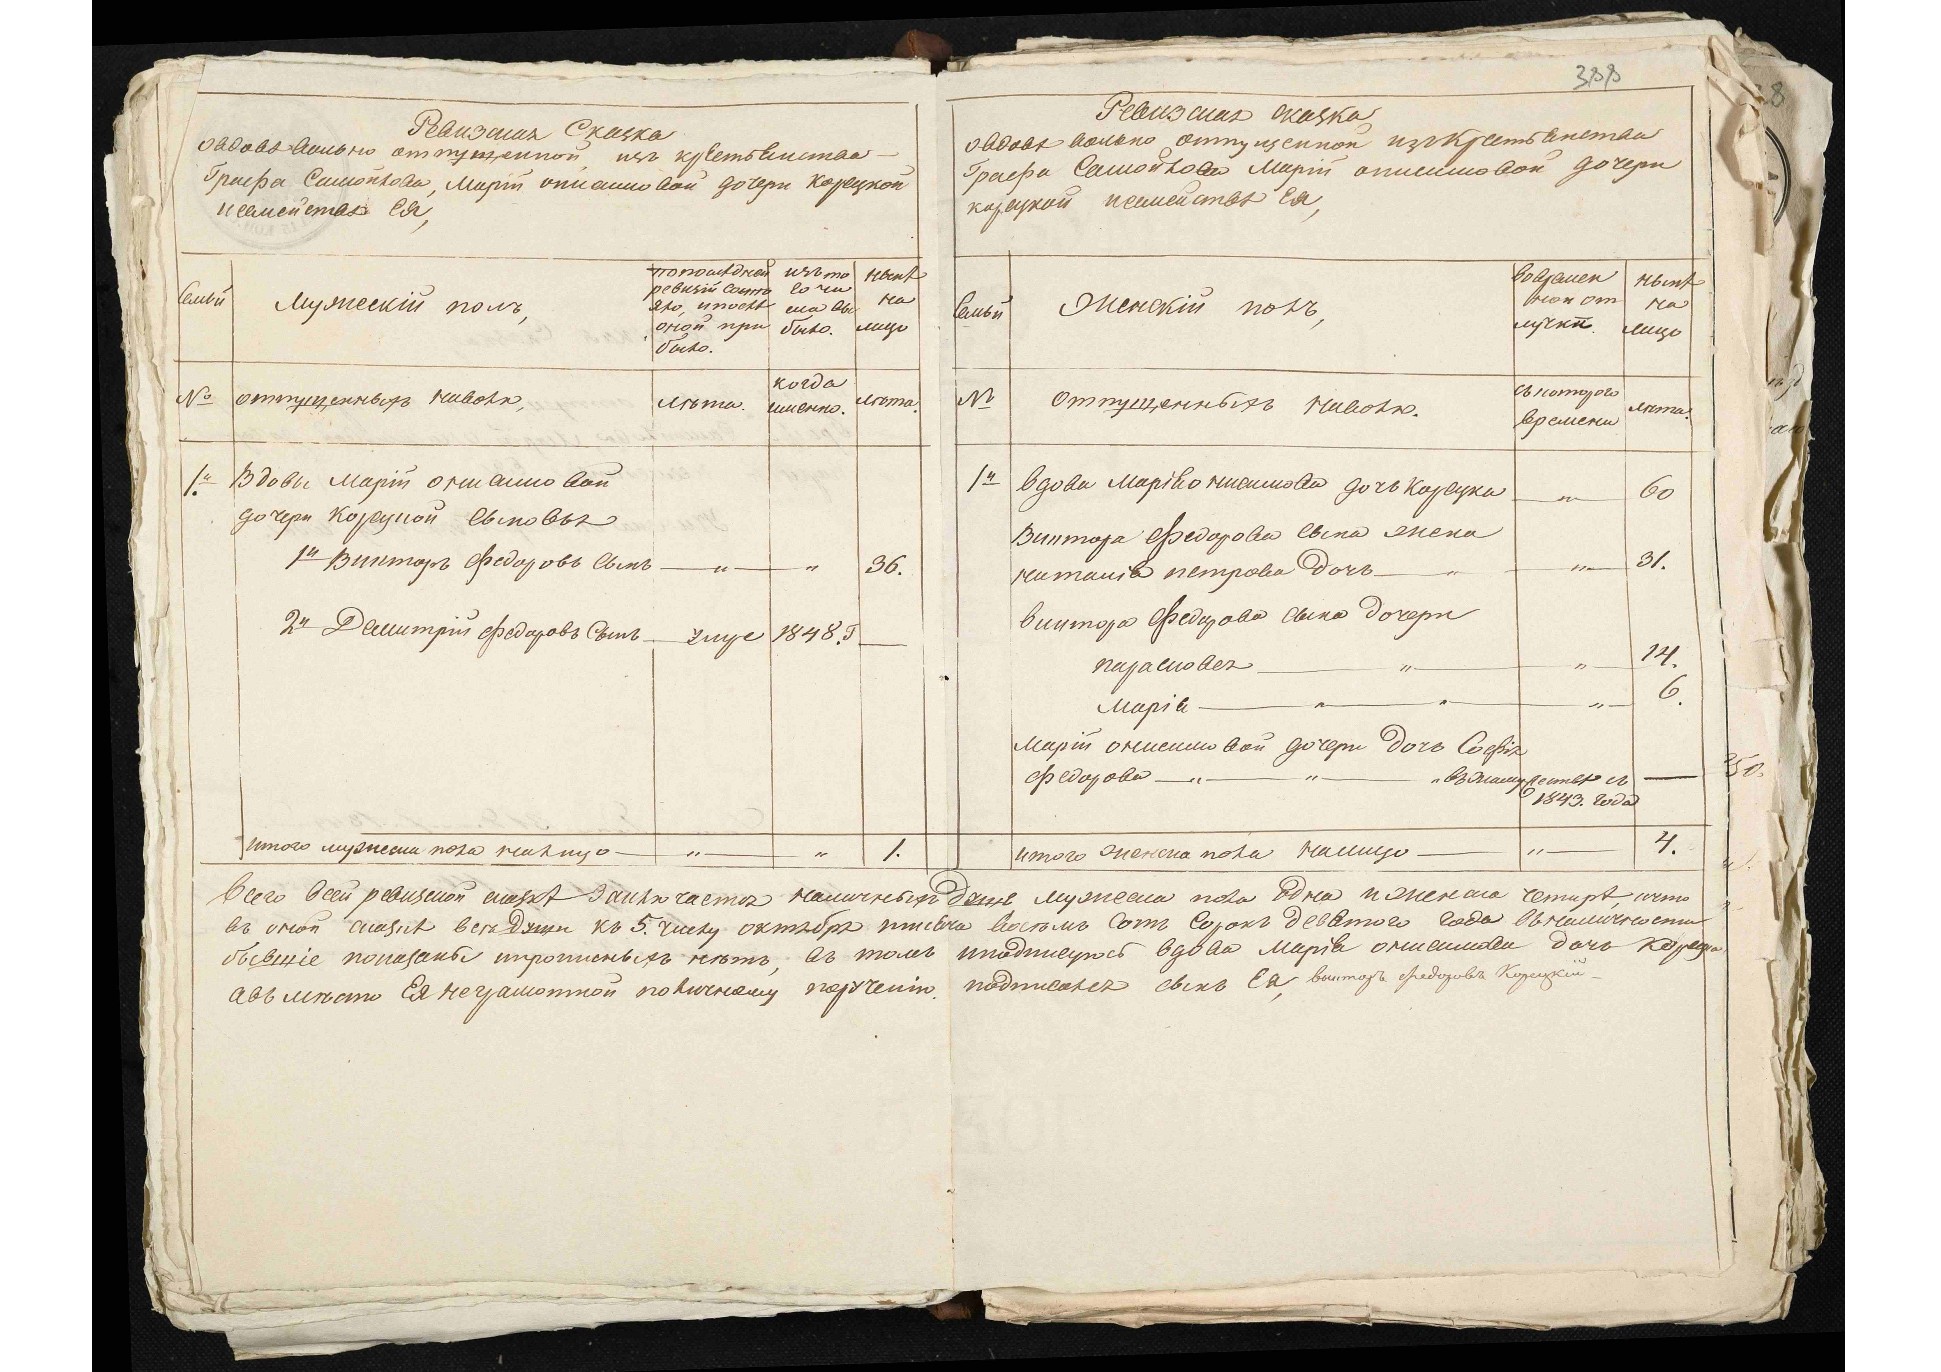 Ревизская Сказка
овдове вольно отпущенной изъ крестьянства
Графа Самойлова, Марiи онисимовой дочери Корецкой
исемействе Ея,
Семьи
Мужескiй полъ,
попоследней
ревизiи состо
яло, ипосле
оной при
было.
изъ то
го чи
сла вы
было.
ныне
на
лицо
№
отпущенныхъ наволю,
лета.
когда
именно.
лета.
1.й Вдовы Марiи онисимовой
дочери Корецкой сыновья
1й Викторъ Федоровъ сынъ — „ — „ 36.
2й Демитрiй Федоровъ Сынъ — 1848.г —
итого мужеска пола налицо — „ — „ 1.
388
Ревизская сказка
овдове вольно отпущенной изъ крестьянства
Графа Самойлова Марiи онисимовой дочери
корецкой исемействе Ея,
Семьи
Женскiй полъ,
вовремен
ной от
лучки.
ныне
на
лицо
№
Отпущенныхъ наволю.
съ которого
времени
лета.
1й вдова Марiя онисимова дочь Корецка — „ — 60
Виктора Федорова сына жена
наталiя петрова Дочь — „ — „ — 31.
виктора Федорова сына дочери
парасковея — „ — „ — 14.
Марiя — „ — „ — „ — 6.
Марiи онисимовой дочери Дочь Софiя
Федорова — „ — „ — „ взамужестве съ —
1843. года
итого женска пола налицо — „ — 4.
Всего всей ревизской сказке заключается наличныхъ Душъ мужеска пола Одна и женска четыре, ичто
въ оной сказке все Души къ 5. числу октября тисяча восемь сотъ сорокъ девятого года въналичности
бывшiе показаны ипрописныхъ нетъ, въ томъ иподписуюсь вдова Марiя онисимова дочь Корецка
авъ место Ея неграмотной поличному порученiю подписался сынъ Ея, викторъ Федоровъ Корецкiй —